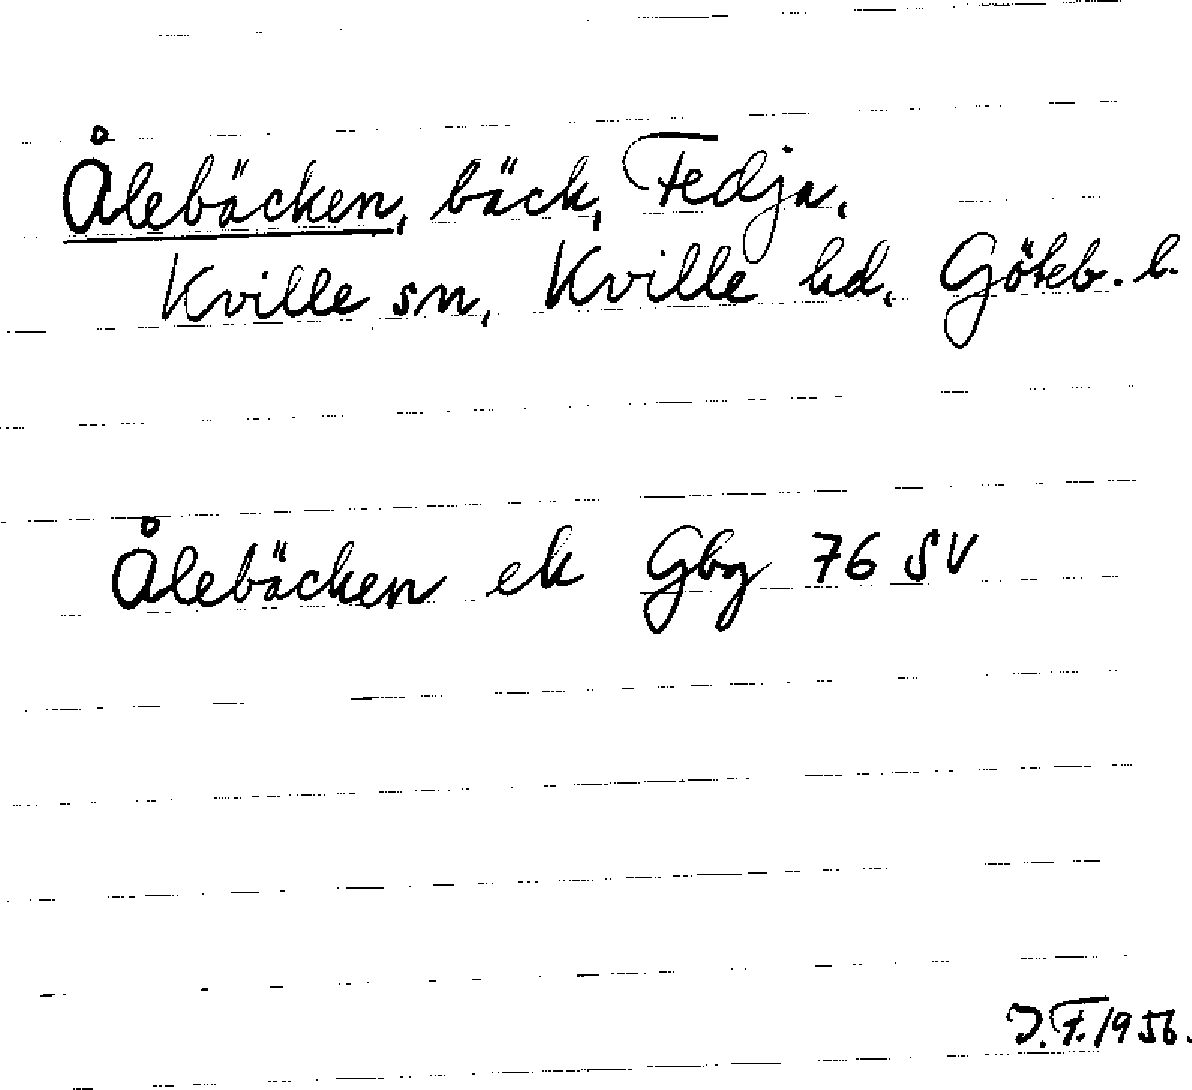 Ålebäcken, bäck, Fedja,
Kville sn, Kville hd, Göteb. l.
Ålebäcken ek Gbg 76 SV
J.F. 1956.